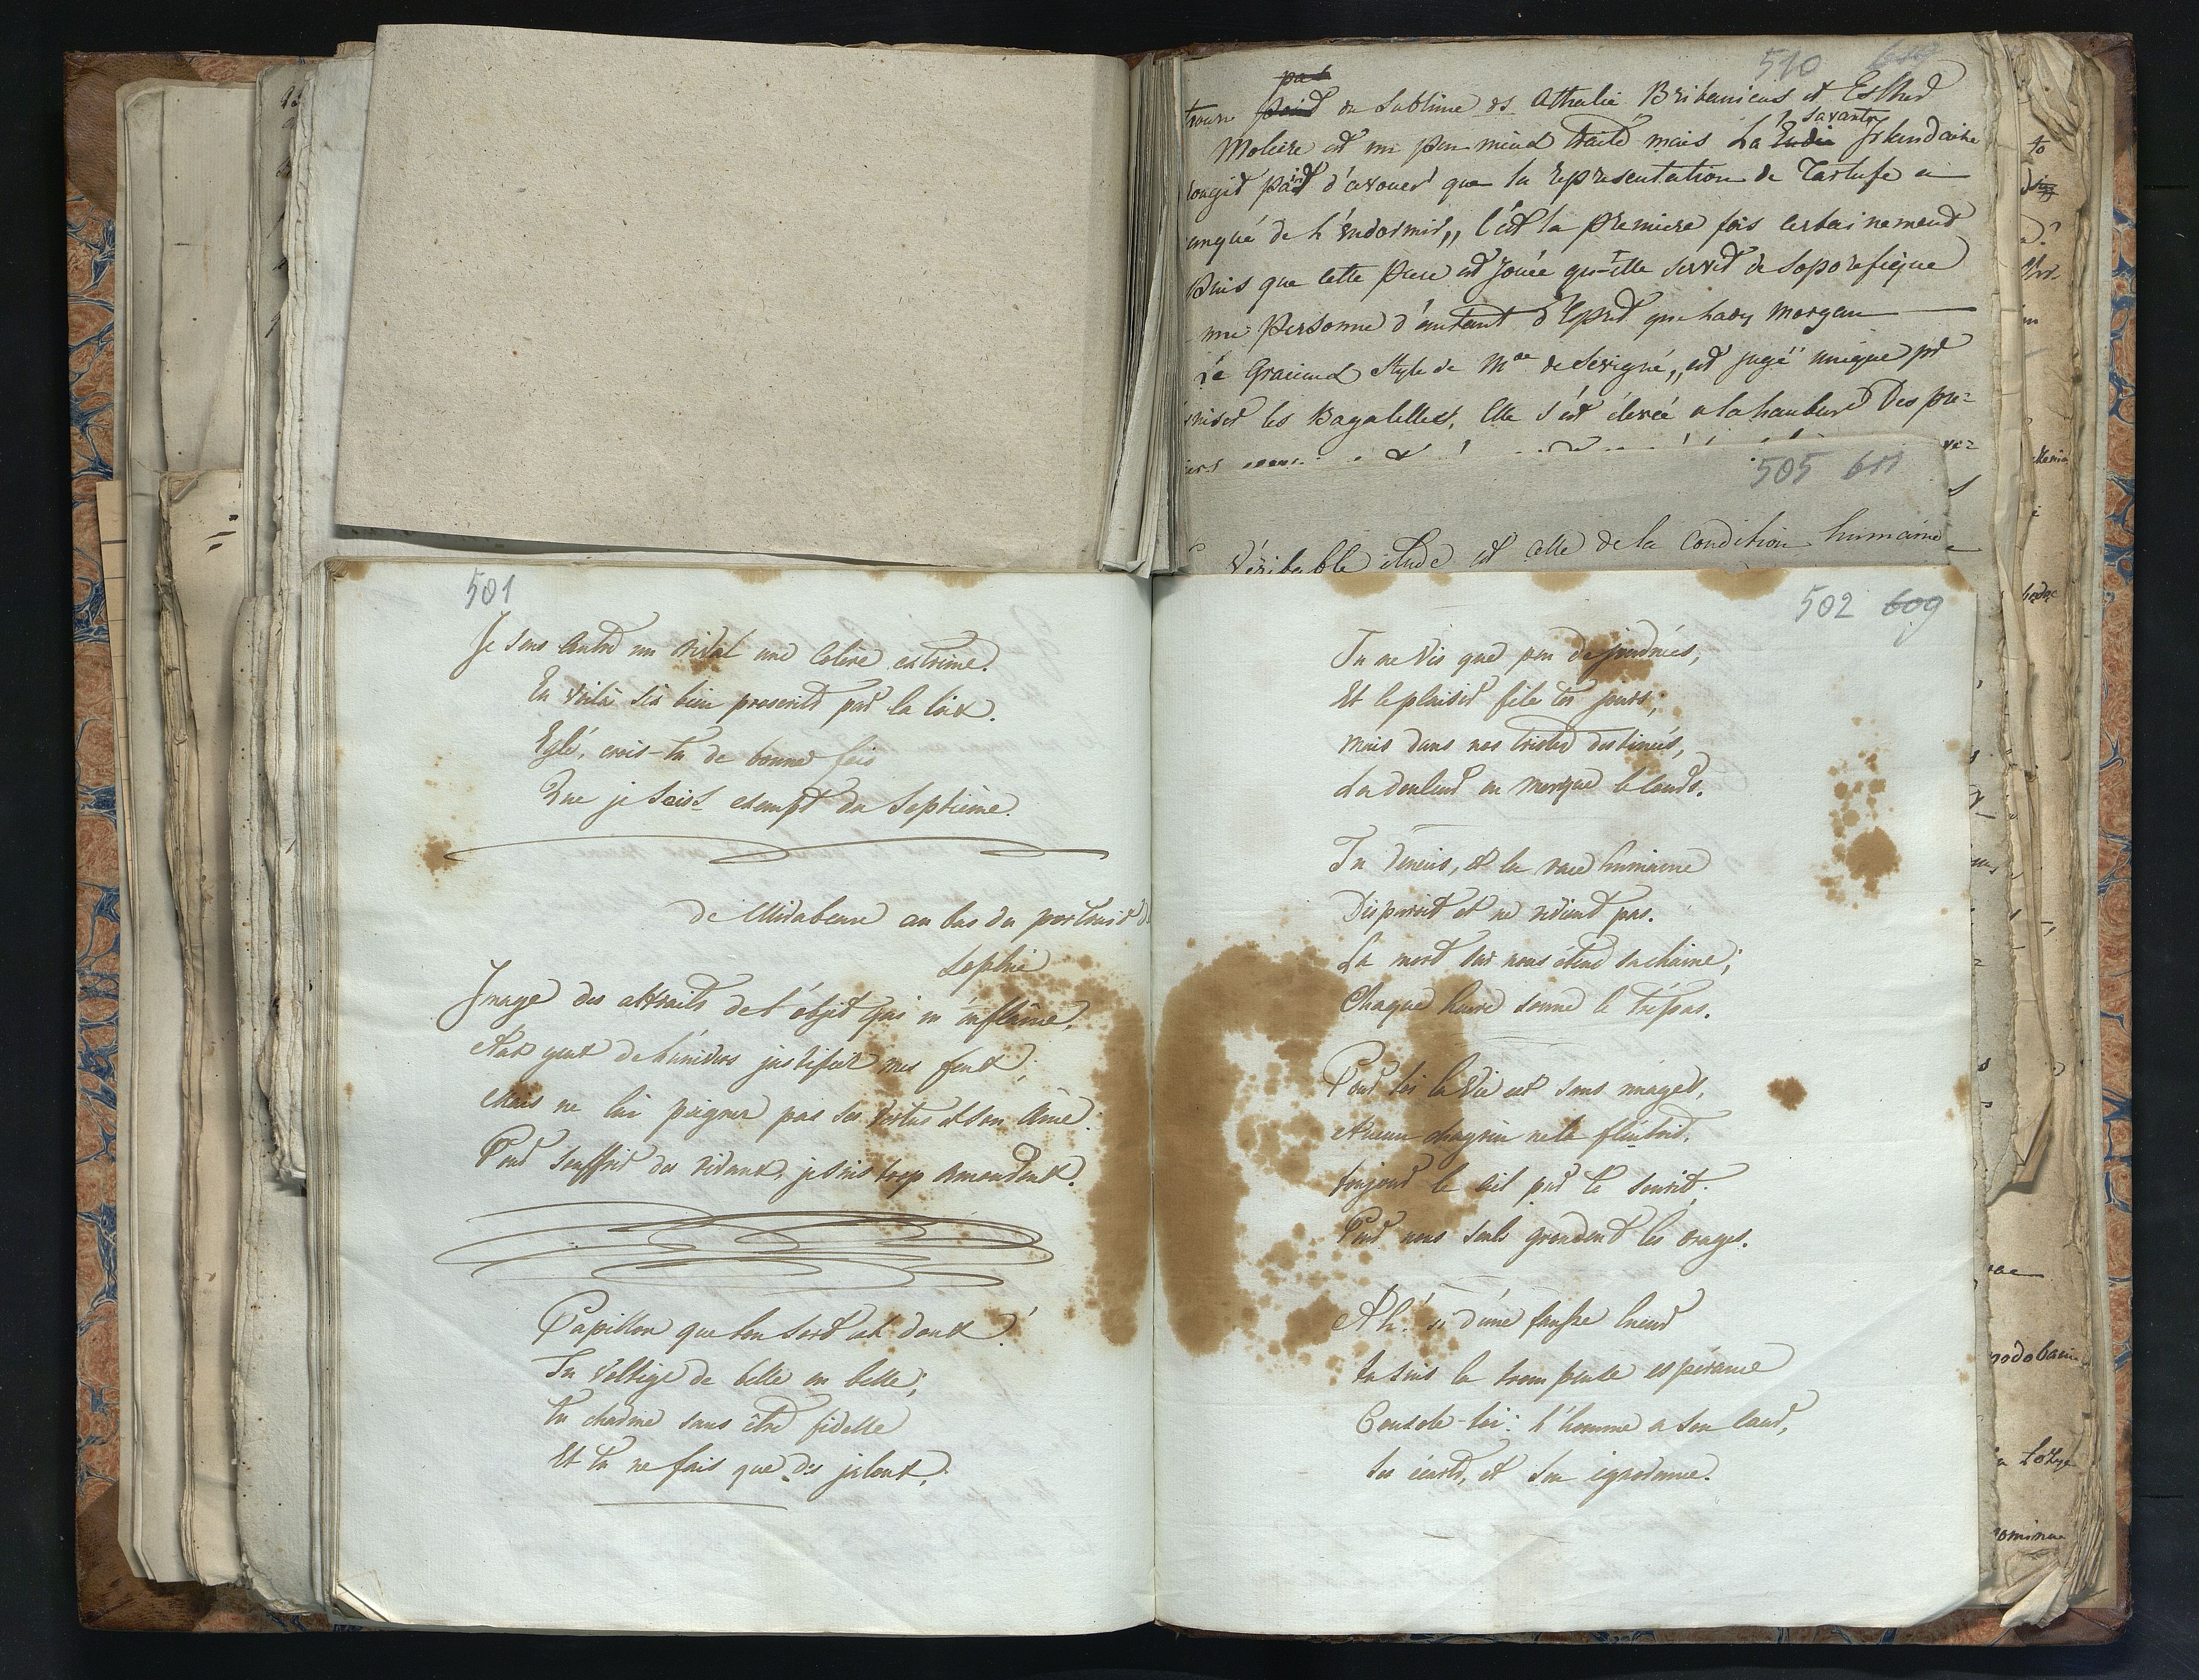 510
pas
trouve point du Sublime ds Athalie Britanicus et Esther
Moliere est un peu mieux traité mais La Savante Irlandaise
rougit point d'avouer que la représentation de Tartufe a
anqué de l'endormir,, C'est la premiere fois certainement
puis que cette piece est jouée qu'elle servit de soporefique
une personne d'autant d'Esprit que Lady Morgan
Le Gracieux Style de Mme de Sévigné,, est jugé unique pr
niser les Bagatelles, Elle s'est élevée a la hauteur Des pre=
505 611
Véritable étude est celle de la Condition humaine
501
Je sens contre un rival une colère extrême.
En voilà six bien proscrits par la loix.
Eglé, crois-tu de bonne foie
Que je sois exempt du Septième.
de Mirabeau au bas du portrait de
Sophie
Image des attraits de l'objet qui m'enflâme,
Aux yeux de l'univers justifiez mes feux;
Mais ne lui peignez pas ses vertus et son âme:
Pour souffrir des rivaux, je suis trop amoureux.
Papillon que ton sort est doux!
Tu voltige de belle en belle;
Tu charme sans être fidelle
Et tu ne fais que des jaloux,
502 609
Tu ne vis que peu de journées,
Et le plaisir file tes jours;
Mais dans nos tristes destinées,
La douleur en marque le cours.
Tu renais, et la race humaine
Disparoit et ne revient pas.
La mort sur nous étend sa chaine;
Chaque heure sonne le trépas.
Pour toi la vie est sans nuages,
Aucun chagrin ne la flétrit.
toujours le ciel pur te sourit;
Pour nous seuls grondent les orages.
Ah! si d'une fausse lueur
Tu suis la trompeuse espérance
Console-toi: l'homme a son cœur,
Ses écarts, et son ignorance.